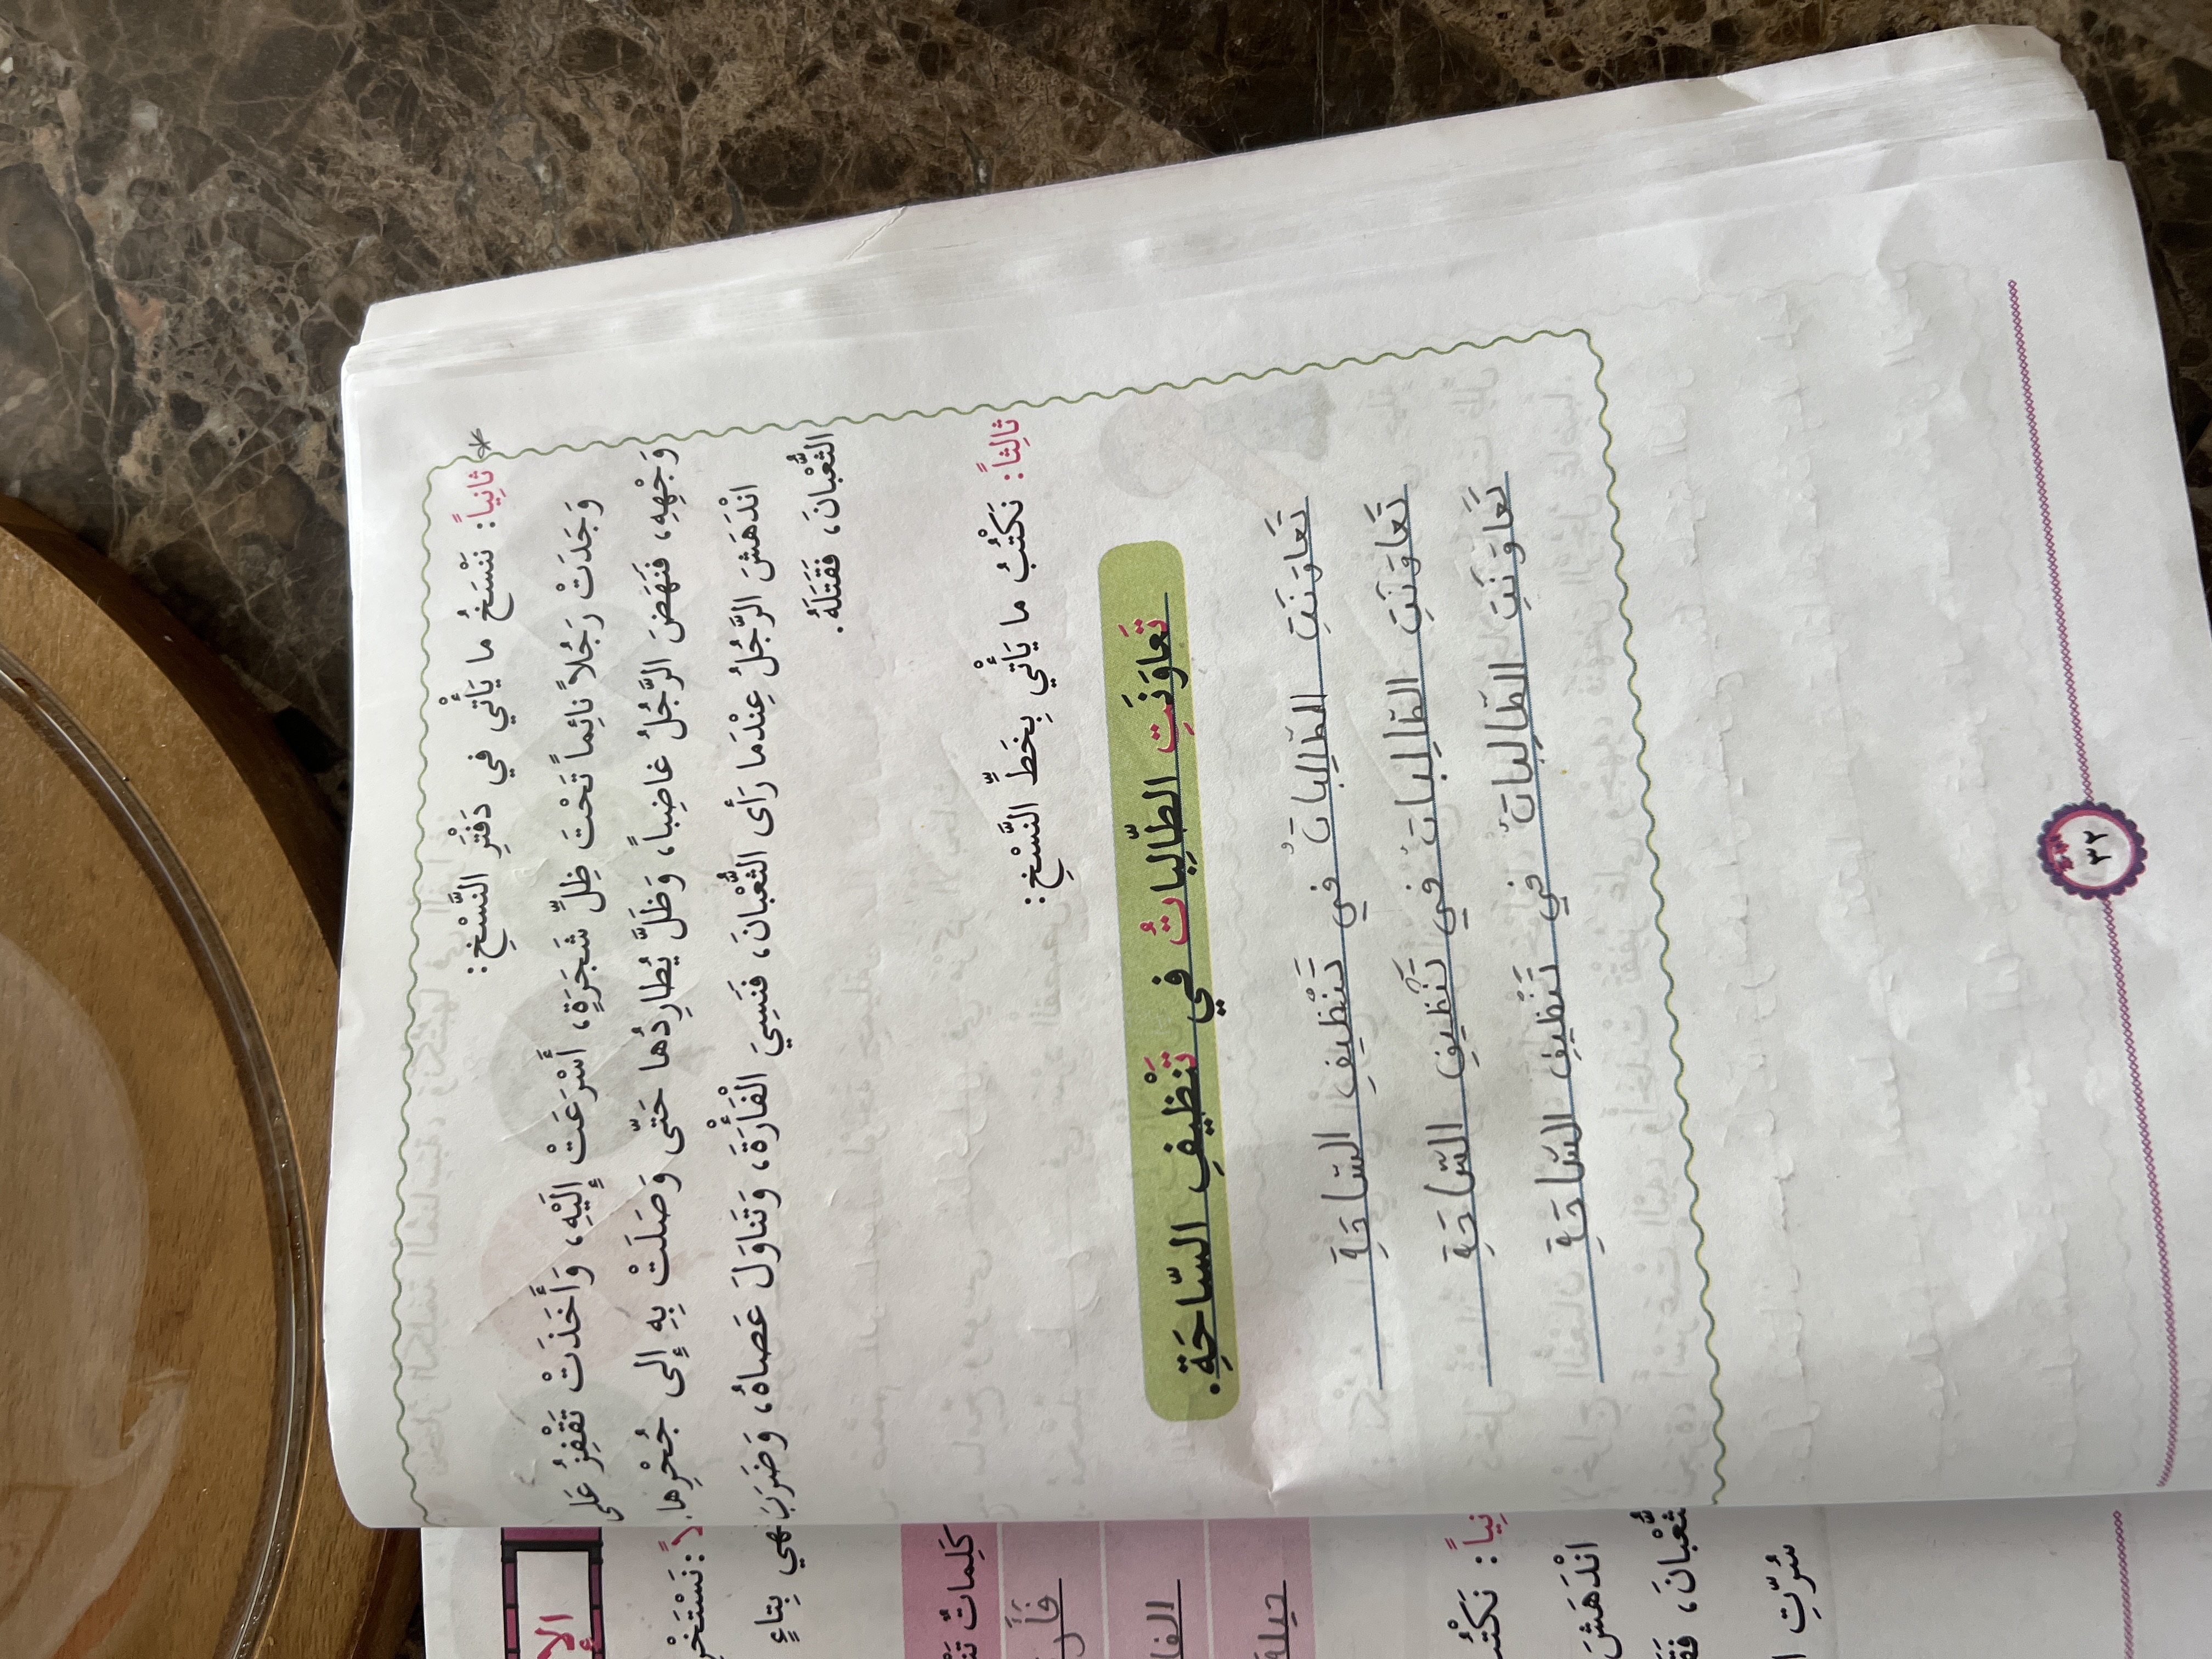 ثانِياً: نَنْسَخُ ما يَأْتي في دَفْتَرِ النَّسْخِ:
وَجَدَتْ رَجُلاً نائِماً تَحْتَ ظِلِّ شَجَرَةٍ، أَسْرَعَتْ إِلَيْهِ، وَأَخَذَتْ تَقْفِزُ عَلى
وَجْهِهِ، فَنَهَضَ الرَّجُلُ غاضِباً، وَظَلَّ يُطارِدُها حَتّى وَصَلَتْ بِهِ إِلى جُحْرِها.
انْدَهَشَ الرَّجُلُ عِنْدَما رَأى الثُّعْبانَ، فَنَسِيَ الْفَأْرَةَ، وَتَناوَلَ عَصاهُ، وَضَرَبَ
الثُّعْبانَ، فَقَتَلَهُ.
ثالِثاً: نَكْتُبُ ما يَأْتي بِخَطِّ النَّسْخِ:
تَعاوَنَتِ الطّالِباتُ في تَنْظيفِ السّاحَةِ.
تَعاوَنَتِ الطّالِباتُ في تَنْظيفِ السّاحَةِ
تَعاوَنَتِ الطّالِباتُ في تَنْظيفِ السّاحَةِ
تَعاوَنَتِ الطّالِباتُ في تَنْظيفِ السّاحَةِ
٣٢
بِتاءٍ
كَلِماتٌ
حيلة
نَكْتُبُ
انْدَهَشَ
سُرَّتِ